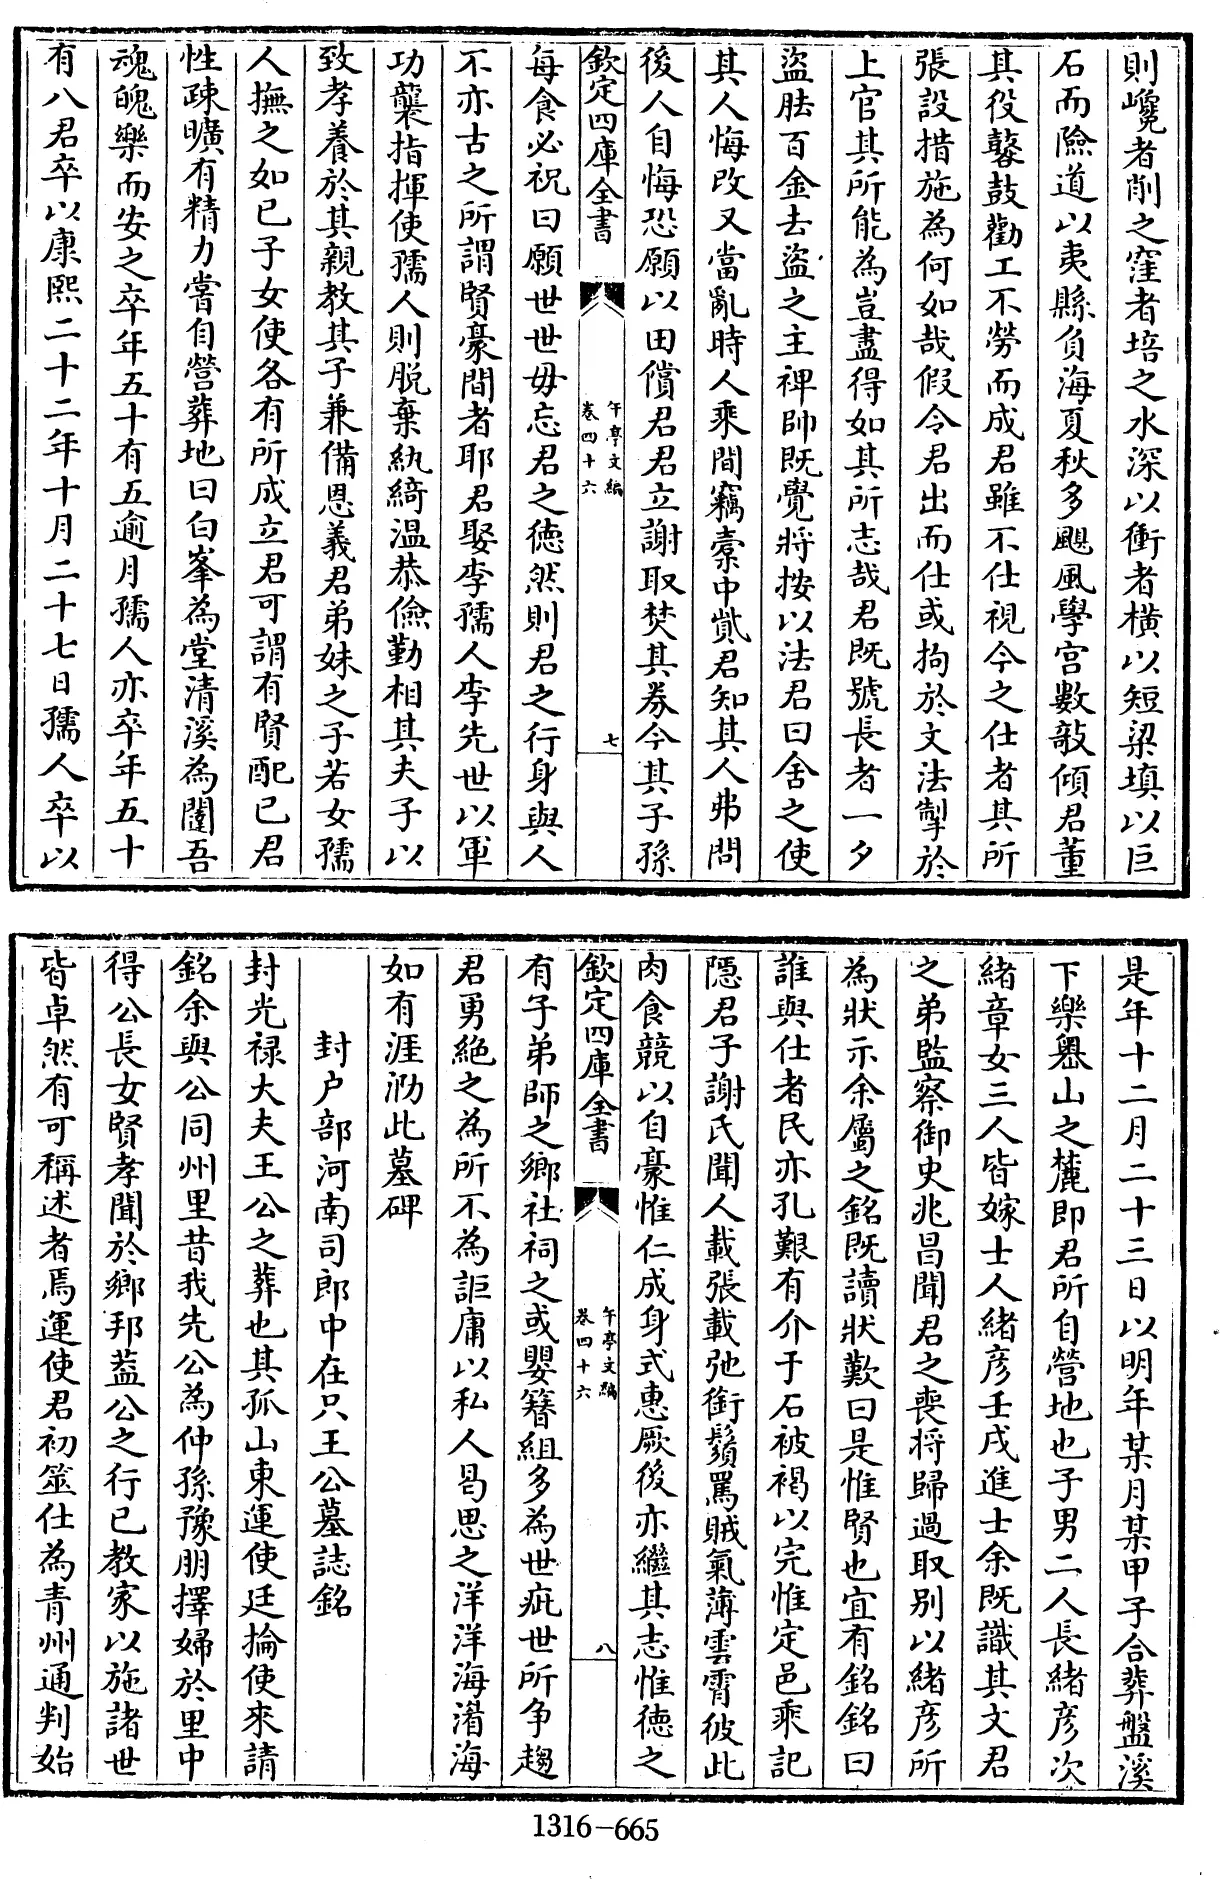 則巉者削之窪者培之水深以衝者橫以短梁填以巨
石而險道以夷縣負海夏秋多颶風學宫數敧傾君董
其役鼛鼓勸工不勞而成君雖不仕視今之仕者其所
張設措施為何如哉假令君出而仕或拘於文法掣於
上官其所能為豈盡得如其所志哉君既號長者一夕
盜胠百金去盜之主禆帥既覺將按以法君曰舍之使
其人悔改又當亂時人乘間竊槖中貲君知其人弗問
後人自悔恐願以田償君君立謝取焚其券今其子孫
欽定四庫全書
午亭文編
卷四十六
七
每食必祝曰願世世毋忘君之徳然則君之行身與人
不亦古之所謂賢豪間者耶君娶李孺人李先世以軍
功襲指揮使孺人則脱棄紈綺温恭儉勤相其夫子以
致孝養於其親教其子兼備恩義君弟妹之子若女孺
人撫之如已子女使各有所成立君可謂有賢配已君
性疎曠有精力嘗自營葬地曰白峯為堂清溪為闥吾
魂魄樂而安之卒年五十有五逾月孺人亦卒年五十
有八君卒以康熙二十二年十月二十七日孺人卒以
是年十二月二十三日以明年某月某甲子合葬盤溪
下樂㠗山之麓即君所自營地也子男二人長緒彦次
緒章女三人皆嫁士人緒彦壬戌進士余既識其文君
之弟監察御史兆昌聞君之喪將歸過取别以緒彦所
為狀示余屬之銘既讀狀歎曰是惟賢也宜有銘銘曰
誰與仕者民亦孔艱有介于石被褐以完惟定邑乘記
隱君子謝氏聞人載張載弛銜鬚罵賊氣薄雲霄彼此
肉食競以自豪惟仁成身式惠厥後亦繼其志惟徳之
欽定四庫全書
午亭文編
卷四十六
八
有子弟師之鄉社祠之或嬰簪組多為世疵世所争趨
君勇絶之為所不為詎庸以私人曷思之洋洋海濳海
如有涯泐此墓碑
封户部河南司郎中在只王公墓誌銘
封光禄大夫王公之葬也其孤山東運使廷掄使來請
銘余與公同州里昔我先公為仲孫豫朋擇婦於里中
得公長女賢孝聞於鄉邦葢公之行已教家以施諸世
皆卓然有可稱述者焉運使君初筮仕為青州通判始
1316-665